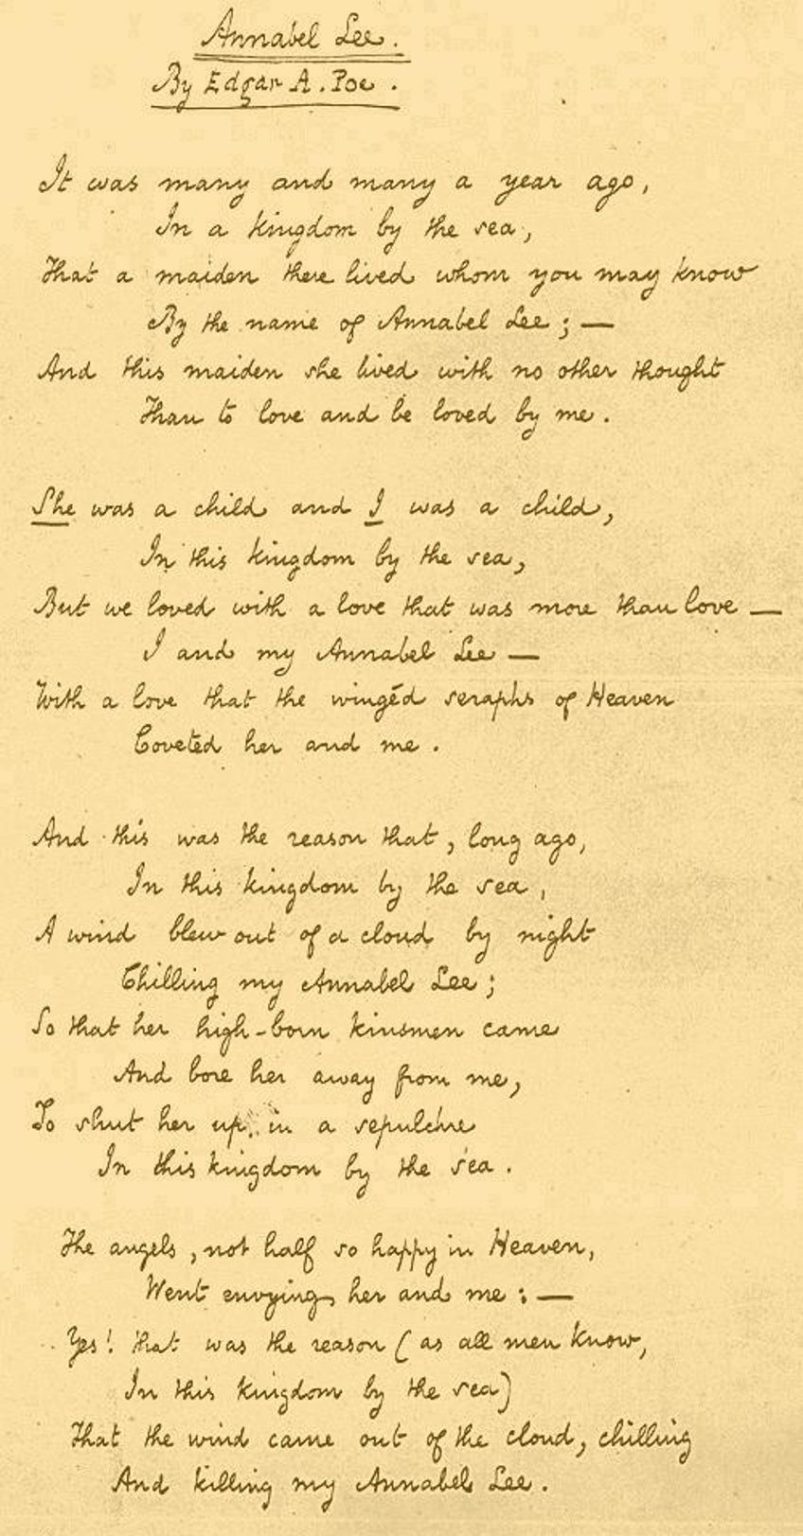 Annabel Lee.
By Edgar A. Poe.
It was many and many a year ago,
In a kingdom by the sea,
That a maiden there lived whom you may know
By the name of Annabel Lee; —
And this maiden she lived with no other thought
Than to love and be loved by me.
She was a child and I was a child,
In this kingdom by the sea,
But we loved with a love that was more than love —
I and my Annabel Lee —
With a love that the wingéd seraphs of Heaven
Coveted her and me.
And this was the reason that, long ago,
In this kingdom by the sea,
A wind blew out of a cloud by night
Chilling my Annabel Lee;
So that her high-born kinsmen came
And bore her away from me,
To shut her up, in a sepulchre
In this kingdom by the sea.
The angels, not half so happy in Heaven,
Went envying her and me: —
Yes! that was the reason (as all men know,
In this kingdom by the sea)
That the wind came out of the cloud, chilling
And killing my Annabel Lee.